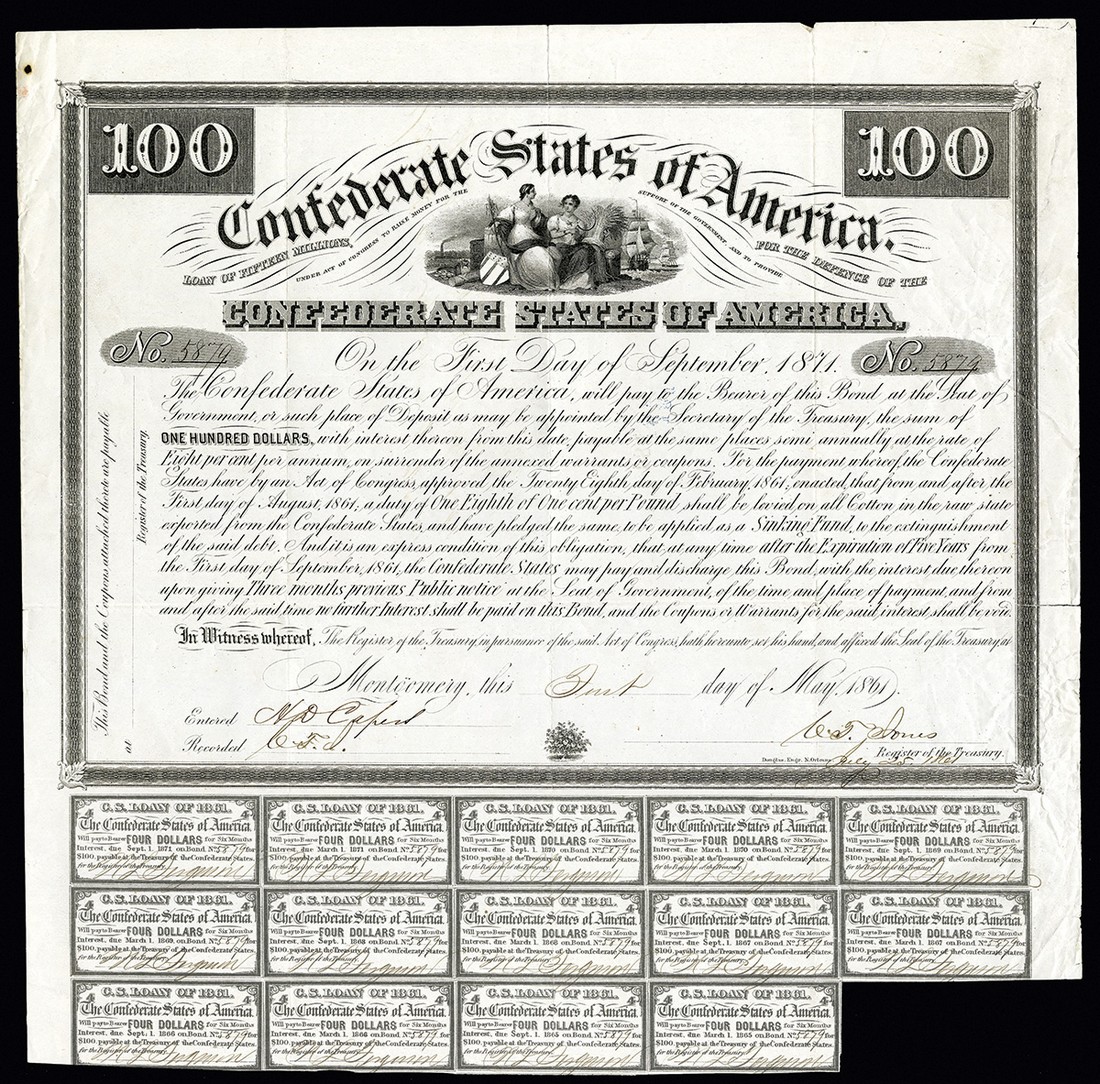 100
100
Confederate States of America.
LOAN OF FIFTEEN MILLIONS,
UNDER ACT OF CONGRESS TO RAISE MONEY FOR THE
SUPPORT OF THE GOVERNMENT, AND TO PROVIDE
FOR THE DEFENCE OF THE
CONFEDERATE STATES OF AMERICA,
No. 5879
No. 5879
On the First Day of September, 1871.
The Confederate States of America, will pay to the Bearer of this Bond at the Seat of
Government, or such place of Deposit as may be appointed by the Secretary of the Treasury, the sum of
ONE HUNDRED DOLLARS, with interest thereon from this date, payable at the same places semi annually at the rate of
Eight per cent per annum, on surrender of the annexed warrants or coupons. For the payment whereof, the Confederate
States have by an Act of Congress, approved the Twenty Eighth, day of February, 1861, enacted, that from, and after, the
First day of August, 1861, a duty of One Eighth of One cent per Pound, shall be levied on all Cotton in the raw state
exported from the Confederate States, and have pledged the same, to be applied as a Sinking Fund, to the extinguishment
of the said debt. And it is an express condition of this obligation, that, at any time after the Expiration of Five Years from
the First day of September, 1861, the Confederate States may pay and discharge this Bond, with the interest due, thereon
upon giving Three months previous Public notice at the Seat of Government, of the time and place of payment, and from
and after the said time no further Interest shall be paid on this Bond, and the Coupons or Warrants for the said interest, shall be void.
In Witness whereof, The Register of the Treasury, in pursuance of the said Act of Congress, hath hereunto set his hand, and affixed the Seal of the Treasury, at
Montgomery, this First day of May, 1861.
Entered
Recorded C. T. J.
C. T. Jones
Register of the Treasury.
Douglas, Engr. N. Orleans
July 25 1861
This Bond and the Coupons attached thereto are payable
at
Register of the Treasury.
4 C. S. LOAN OF 1861. 4
The Confederate States of America.
Will pay to Bearer FOUR DOLLARS for Six Months
Interest, due Sept. 1, 1871 on Bond, No. 5879 for
$100, payable at the Treasury of the Confederate States.
for the Register of the Treasury. Ferguson
4 C. S. LOAN OF 1861. 4
The Confederate States of America.
Will pay to Bearer FOUR DOLLARS for Six Months
Interest, due March 1, 1871 on Bond, No. 5879 for
$100, payable at the Treasury of the Confederate States.
for the Register of the Treasury. Ferguson
4 C. S. LOAN OF 1861. 4
The Confederate States of America.
Will pay to Bearer FOUR DOLLARS for Six Months
Interest, due Sept. 1, 1870 on Bond, No. 5879 for
$100, payable at the Treasury of the Confederate States.
for the Register of the Treasury. Ferguson
4 C. S. LOAN OF 1861. 4
The Confederate States of America.
Will pay to Bearer FOUR DOLLARS for Six Months
Interest, due March 1, 1870 on Bond, No. 5879 for
$100, payable at the Treasury of the Confederate States.
for the Register of the Treasury. Ferguson
4 C. S. LOAN OF 1861. 4
The Confederate States of America.
Will pay to Bearer FOUR DOLLARS for Six Months
Interest, due Sept. 1, 1869 on Bond, No. 5879 for
$100, payable at the Treasury of the Confederate States.
for the Register of the Treasury. Ferguson
4 C. S. LOAN OF 1861. 4
The Confederate States of America.
Will pay to Bearer FOUR DOLLARS for Six Months
Interest, due March 1, 1869 on Bond, No. 5879 for
$100, payable at the Treasury of the Confederate States.
for the Register of the Treasury. Ferguson
4 C. S. LOAN OF 1861. 4
The Confederate States of America.
Will pay to Bearer FOUR DOLLARS for Six Months
Interest, due Sept. 1, 1868 on Bond, No. 5879 for
$100, payable at the Treasury of the Confederate States.
for the Register of the Treasury. Ferguson
4 C. S. LOAN OF 1861. 4
The Confederate States of America.
Will pay to Bearer FOUR DOLLARS for Six Months
Interest, due March 1, 1868 on Bond, No. 5879 for
$100, payable at the Treasury of the Confederate States.
for the Register of the Treasury. Ferguson
4 C. S. LOAN OF 1861. 4
The Confederate States of America.
Will pay to Bearer FOUR DOLLARS for Six Months
Interest, due Sept. 1, 1867 on Bond, No. 5879 for
$100, payable at the Treasury of the Confederate States.
for the Register of the Treasury. Ferguson
4 C. S. LOAN OF 1861. 4
The Confederate States of America.
Will pay to Bearer FOUR DOLLARS for Six Months
Interest, due March 1, 1867 on Bond, No. 5879 for
$100, payable at the Treasury of the Confederate States.
for the Register of the Treasury. Ferguson
4 C. S. LOAN OF 1861. 4
The Confederate States of America.
Will pay to Bearer FOUR DOLLARS for Six Months
Interest, due Sept. 1, 1866 on Bond, No. 5879 for
$100, payable at the Treasury of the Confederate States.
for the Register of the Treasury. Ferguson
4 C. S. LOAN OF 1861. 4
The Confederate States of America.
Will pay to Bearer FOUR DOLLARS for Six Months
Interest, due March 1, 1866 on Bond, No. 5879 for
$100, payable at the Treasury of the Confederate States.
for the Register of the Treasury. Ferguson
4 C. S. LOAN OF 1861. 4
The Confederate States of America.
Will pay to Bearer FOUR DOLLARS for Six Months
Interest, due Sept. 1, 1865 on Bond, No. 5879 for
$100, payable at the Treasury of the Confederate States.
for the Register of the Treasury. Ferguson
4 C. S. LOAN OF 1861. 4
The Confederate States of America.
Will pay to Bearer FOUR DOLLARS for Six Months
Interest, due March 1, 1865 on Bond, No. 5879 for
$100, payable at the Treasury of the Confederate States.
for the Register of the Treasury. Ferguson